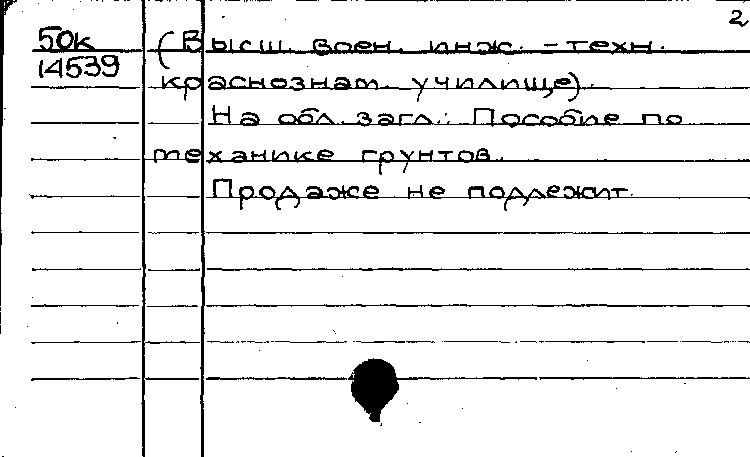 2
50к
14539
(Высш. воен. инж.-техн.
краснознам. училище).
На обл. загл.: Пособие по
механике грунтов.
Продаже не подлежит.